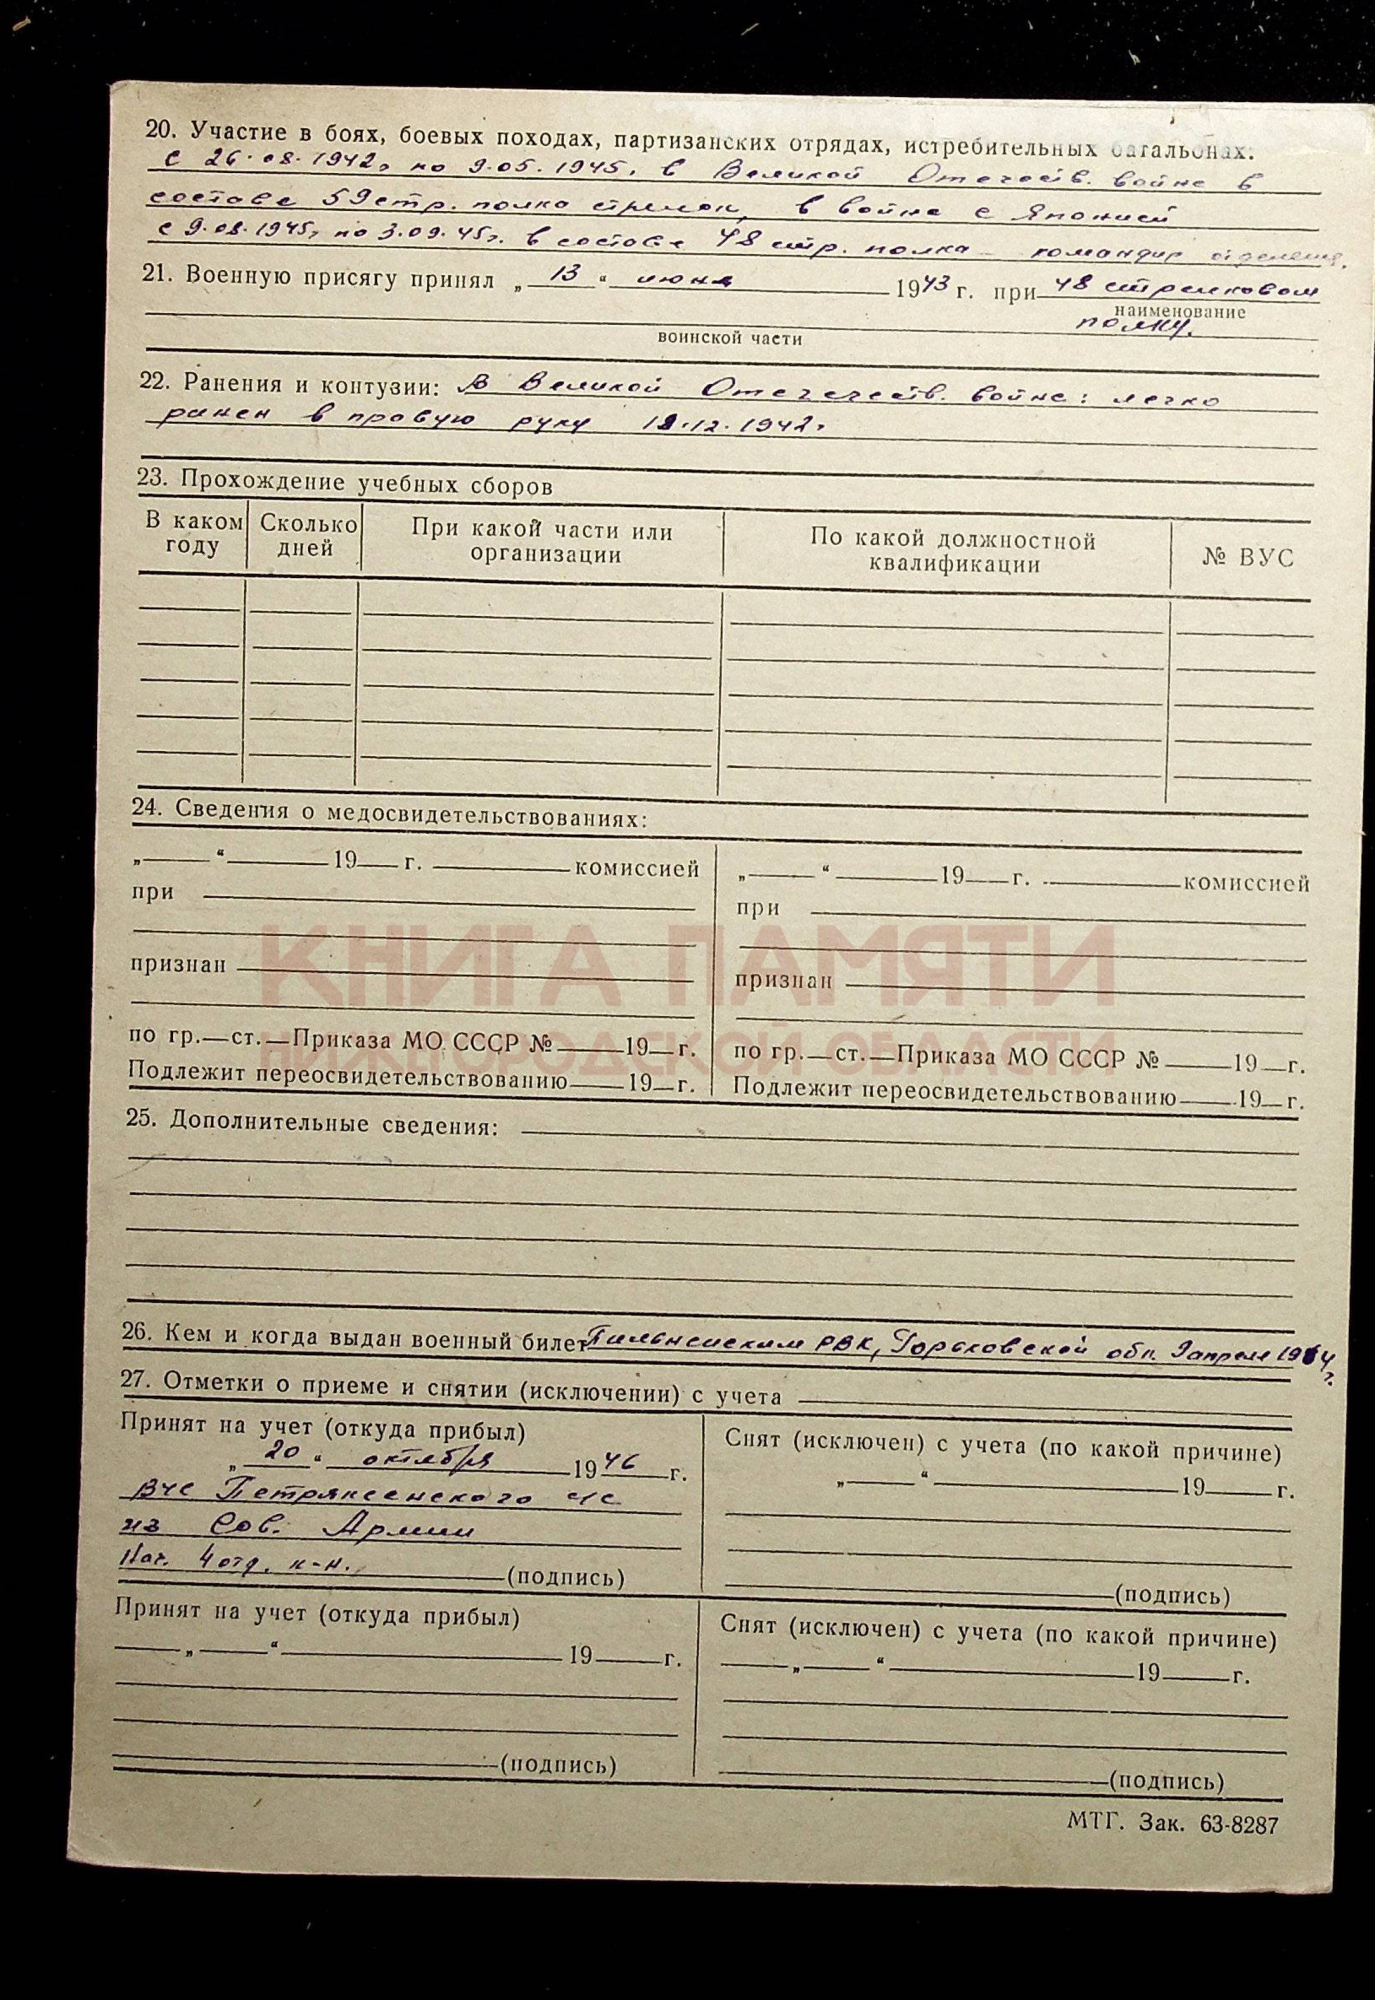 20. Участие в боях, боевых походах, партизанских отрядах, истребительных батальонах:
с 26.08.1942г по 9.05.1945г в Великой Отечеств. войне в
составе 59 стр. полка стрелок, в войне с Японией
с 9.08.1945г по 3.09.45г. в составе 48 стр. полка – командир отделения.
21. Военную присягу принял „ 13 “ июня 1943 г. при 48 стрелковом
наименование
полку.
воинской части
22. Ранения и контузии: В Великой Отечеств. войне: легко
ранен в правую руку 12.1942г
23. Прохождение учебных сборов
В каком году Сколько дней При какой части или организации По какой должностной квалификации № ВУС
24. Сведения о медосвидетельствованиях:
„ “ 19 г. комиссией „ “ 19 г. комиссией
при при
признан признан
КНИГА ПАМЯТИ
НИЖЕГОРОДСКОЙ ОБЛАСТИ
по гр.—ст.—Приказа МО СССР № 19 г. по гр.—ст.—Приказа МО СССР № 19 г.
Подлежит переосвидетельствованию 19 г. Подлежит переосвидетельствованию 19 г.
25. Дополнительные сведения:
26. Кем и когда выдан военный билет Пильнинским РВК, Горьковской обл. 9 апреля 1964 г.
27. Отметки о приеме и снятии (исключении) с учета
Принят на учет (откуда прибыл) Снят (исключен) с учета (по какой причине)
„ 20 “ октября 1946 г. „ “ 19 г.
ВУС Петряксенского с/с
из Сов. Армии
Нач. 4 отд. к-н. (подпись) (подпись)
Принят на учет (откуда прибыл) Снят (исключен) с учета (по какой причине)
„ “ 19 г. „ “ 19 г.
(подпись) (подпись)
МТГ. Зак. 63-8287